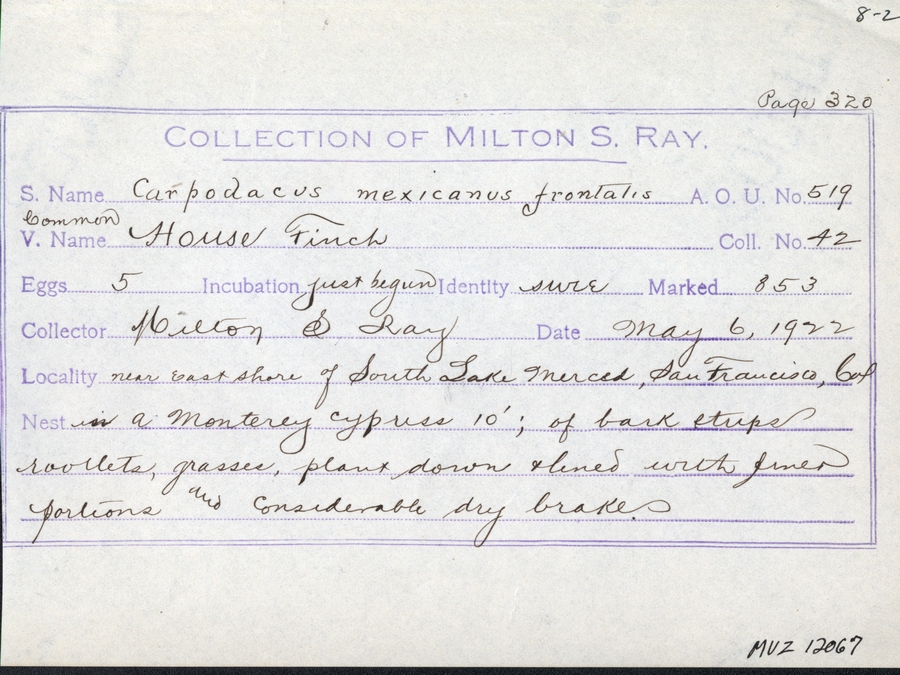 8-2
Page 320
COLLECTION OF MILTON S. RAY.
S. Name Carpodacus mexicanus frontalis A. O. U. No. 519
Common
V. Name House Finch Coll. No. 42
Eggs 5 Incubation just begun Identity sure Marked 853
Collector Milton S Ray Date May 6, 1922
Locality near east shore of South Lake Merced, San Francisco, Cal
Nest in a Monterey cypress 10'; of bark strips
rootlets, grasses, plant down & lined with finer
portions and considerable dry brake.
MVZ 12067